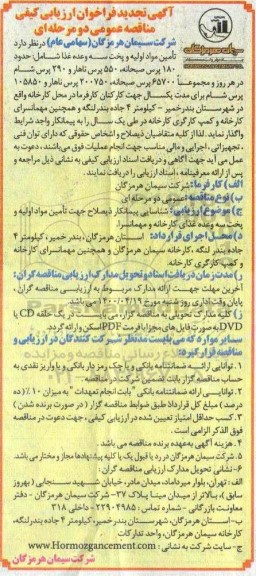 آگهی تجدید فراخوان ارزیابی کیفی
مناقصه عمومی دو مرحله ای
شرکت سیمان هرمزگان (سهامی عام) در نظر دارد
تأمین مواد اولیه و پخت سه وعده غذا شامل: حدود
۱۸۰ پرس صبحانه، ۵۵۰ پرس ناهار و ۲۹۰ پرس شام
در هر روز و مجموعاً ۶۵۷۰۰ پرس صبحانه، ۲۰۰۷۵۰ پرس ناهار و ۱۰۵۸۵۰
پرس شام برای مدت یکسال جهت کارکنان کارفرما در محل کارخانه واقع
در شهرستان بندرخمیر - کیلومتر ۴ جاده بندرلنگه و همچنین مهمانسرای
کارخانه و کمپ کارگری کارخانه در طی یک سال را به پیمانکار واجد شرایط
واگذار نماید. لذا از کلیه متقاضیان ذیصلاح و اشخاص حقوقی که دارای توان فنی
، تجهیزاتی، اجرایی و مالی مناسب جهت انجام عملیات فوق می‌باشند، دعوت به
عمل می آید جهت آگاهی و دریافت اسناد ارزیابی کیفی به نشانی ذیل مراجعه و
پس از ارائه معرفینامه، اسناد ارزیابی را دریافت نمایند.
الف) کارفرما: شرکت سیمان هرمزگان
ب) نوع مناقصه: عمومی دو مرحله ای
ج) موضوع ارزیابی: شناسایی پیمانکار ذیصلاح جهت تأمین مواد اولیه و
پخت سه وعده غذای کارخانه و مهمانسرا.
د) محل اجرای قرارداد: استان هرمزگان، بندر خمیر، کیلومتر ۴
جاده بندر لنگه، کارخانه سیمان هرمزگان و همچنین مهمانسرای کارخانه
و کمپ کارگری کارخانه
ر) مدت زمان دریافت اسناد و تحویل مدارک ارزیابی مناقصه گران:
آخرین مهلت جهت ارائه مدارک مربوط به ارزیابی مناقصه گران،
پایان وقت اداری روز شنبه مورخ ۱۴۰۰/۰۴/۱۹ می باشد.
ز) کلیه مدارک تحویلی به مناقصه گزار، می بایست در یک حلقه CD یا
DVD به صورت فایل های مجزا با فرمت PDF اسکن و ارائه گردد.
سایر مواردی که می بایست مدنظر شرکت کنندگان در ارزیابی و
مناقصه قرار گیرد:
۱. توانایی ارائه ضمانتنامه بانکی و یا چک رمز دار بانکی و یا واریز نقدی به
حساب مناقصه گزار بابت تضمین شرکت در مناقصه
۲. توانایی ارائه ضمانتنامه بانکی "بابت انجام تعهدات" به میزان ۱۰٪ (ده
درصد) مبلغ کل قرارداد طبق ضوابط مناقصه گزار (در صورت برنده شدن)
۳. کسب حداقل امتیاز تعیین شده در ارزیابی کیفی، جهت دعوت در مناقصه
فوق الذکر الزامی است.
۴. هزینه آگهی به عهده برنده مناقصه می باشد.
۵. شرکت سیمان هرمزگان در رد یا قبول یک یا کلیه پیشنهادها مجاز و مختار می باشد.
۶- نشانی تحویل مدارک ارزیابی مناقصه گران:
الف: تهران، بلوار میرداماد، میدان مادر، خیابان شهید سنجابی (بهروز
سابق)، بالاتر از میدان مینا پلاک ۳۷- شرکت سیمان هرمزگان - دفتر
معاونت بازرگانی - شماره تماس: ۲۲۹۰۴۹۸۵ - داخلی ۳۱۸
ب- استان هرمزگان، شهرستان بندرخمیر، کیلومتر ۴ جاده بندرلنگه،
کارخانه سیمان هرمزگان، واحد تدارکات
ج- سایت شرکت به نشانی: www.Hormozgancement.com
شرکت سیمان هرمزگان